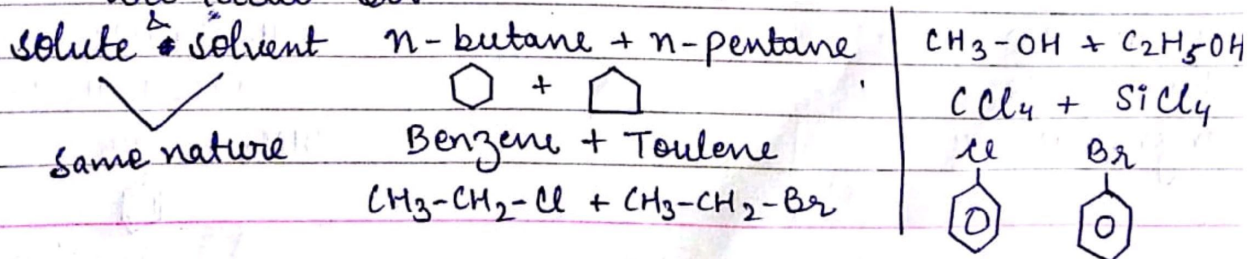 solute & solvent n-butane + n-pentane
+
same nature Benzene + Toulene
CH3-CH2-Cl + CH3-CH2-Br
CH3-OH + C2H5OH
CCl4 + SiCl4
Cl Br